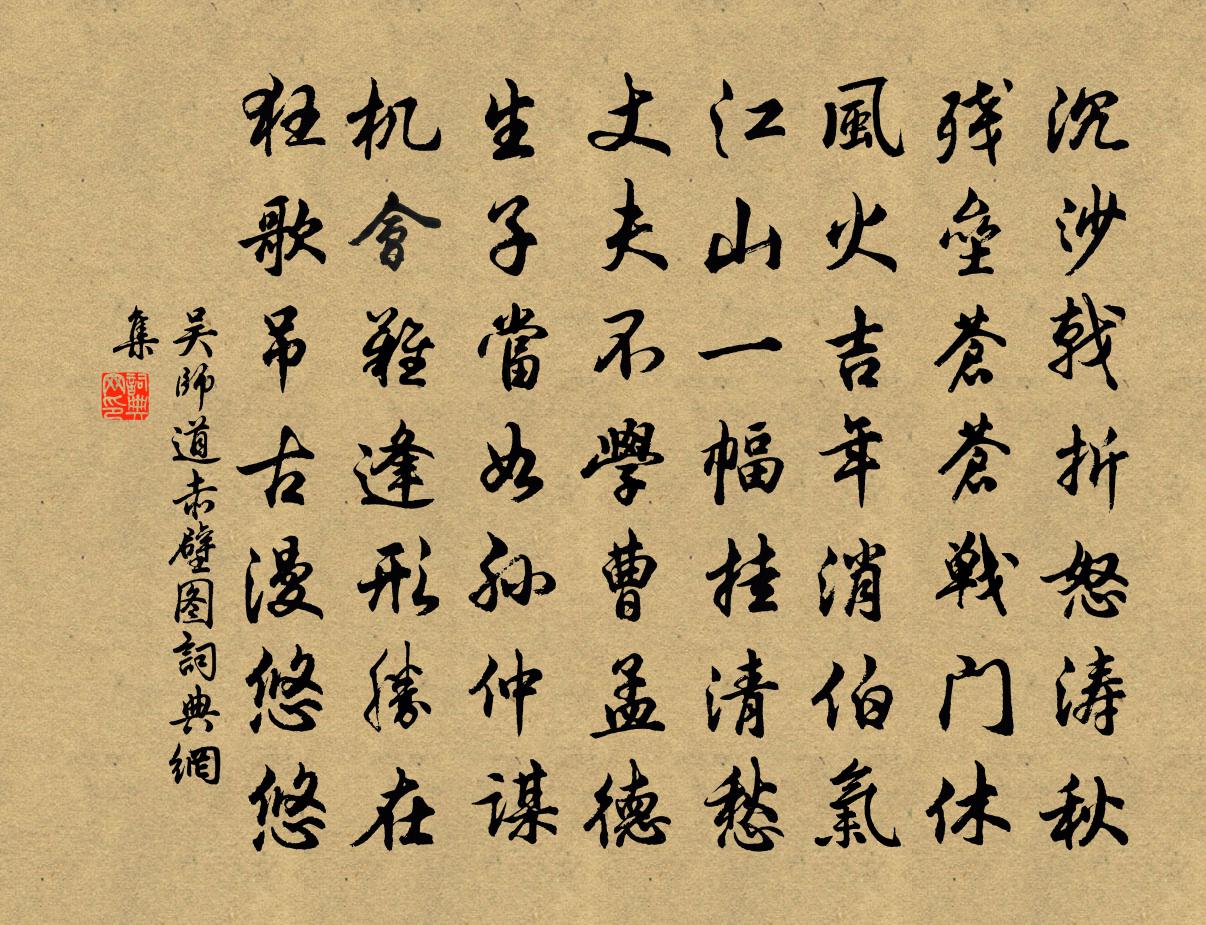 沉沙戟折怒涛秋
残壘蒼蒼戦门休
風火吉年消伯氣
江山一幅挂清愁
丈夫不學曹孟德
生子當如孙仲謀
机會難逢形勝在
狂歌吊古漫悠悠
吴師道赤壁图詞典網
集
詞典網印